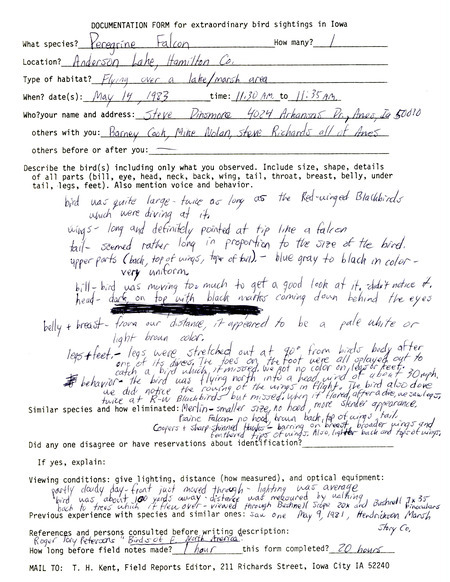 DOCUMENTATION FORM for extraordinary bird sightings in Iowa
What species? Peregrine Falcon How many? 1
Location? Anderson Lake, Hamilton Co.
Type of habitat? Flying over a lake/marsh area
When? date(s): May 14, 1983 time: 11:30 A.M. to 11:35 A.M.
Who?your name and address: Steve Dinsmore 4024 Arkansas Dr., Ames, Ia 50010
others with you: Barney Cook, Mike Nolan, Steve Richards all of Ames
others before or after you: —
Describe the bird(s) including only what you observed. Include size, shape, details
of all parts (bill, eye, head, neck, back, wing, tail, throat, breast, belly, under
tail, legs, feet). Also mention voice and behavior.
bird was quite large - twice as long as the Red-winged Blackbirds
which were diving at it.
wings - long and definitely pointed at tip like a falcon
tail - seemed rather long in proportion to the size of the bird.
upper parts (back, top of wings, top of tail) - blue gray to black in color -
very uniform.
bill - bird was moving too much to get a good look at it, didn't notice it.
head - dark on top with black marks coming down behind the eyes
belly + breast - from our distance, it appeared to be a pale white or
light brown color.
legs + feet - legs were stretched out at 90° from birds body after
one of its dives. The toes on the foot were all splayed out to
catch a bird which it missed. We got no color on legs or feet.
behavior - the bird was flying north into a head wind of about 30 mph.
we did notice the rowing of the wings in flight. The bird also dove
twice at R-w Blackbirds but missed. when it flared, after a dive, we saw legs.
Similar species and how eliminated: Merlin - smaller size, no hood, more slender appearance.
Prairie Falcon - no hood, brown back, top of wings, tail.
Coopers + sharp shinned Hawks - barring on breast, broader wings and
feathered tips of wings. Also, lighter back and top of wings.
Did any one disagree or have reservations about identification?
If yes, explain:
Viewing conditions: give lighting, distance (how measured), and optical equipment:
partly cloudy day - front just moved through - lighting was average
bird was about 100 yards away - distance was measured by walking
back to trees which it flew over - viewed through Bushnell Scope 20X and Bushnell 7x35
binoculars
Previous experience with species and similar ones: saw one May 9, 1981, Hendrickson Marsh
Story Co.
References and persons consulted before writing description:
Roger Tory Petersons "Birds of E. North America.
How long before field notes made? 1 hour this form completed? 20 hours
MAIL TO: T. H. Kent, Field Reports Editor, 211 Richards Street, Iowa City IA 52240